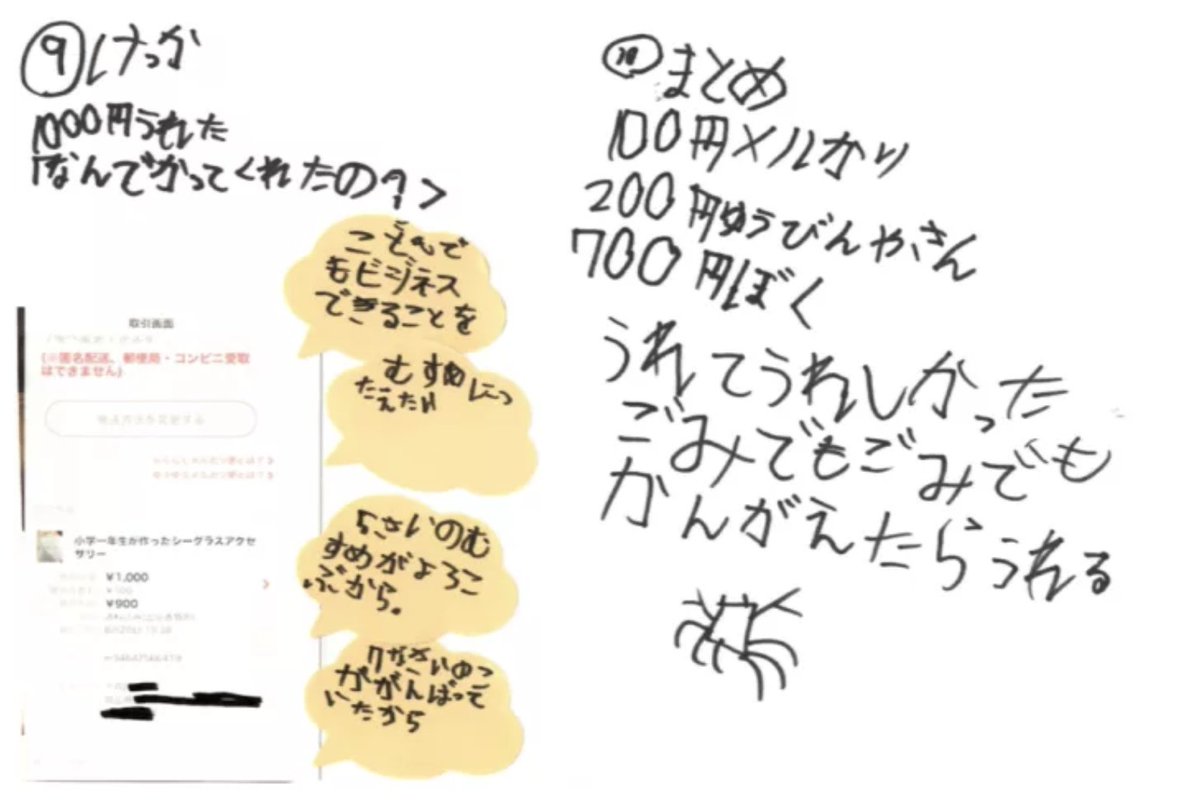 ⑨けっか
1000円うれた
「なんでかってくれたの?>
こどもで
もビジネス
できることを
むすめに
たえたい
5さいのむ
すめがよろこ
ぶから。
7さいゆっ
ががんばって
いたから
取引画面
(※匿名配送、郵便局・コンビニ受取
はできません)
発送方法を変更する
小学一年生が作ったシーグラスアクセ
サリー
¥1,000
¥100
¥900
⑩まとめ
100円メルカリ
200円ゆうびんやさん
700円ぼく
うれてうれしかった
ごみでもごみでも
かんがえたらうれる